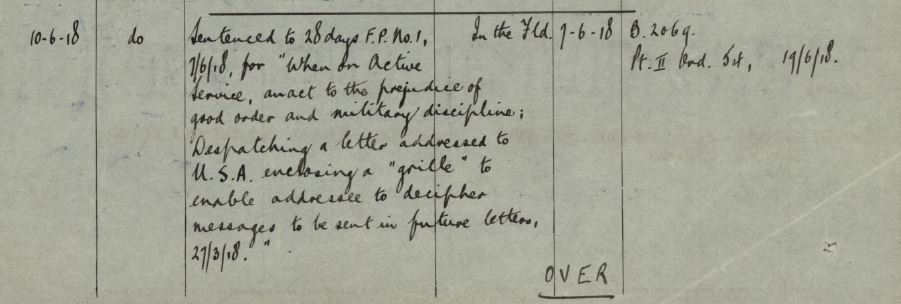 10-6-18 do Sentenced to 28 days F.P. No.1, In the Fld. 7-6-18 B. 2069.
7/6/18, for "When on Active Pt. II Ord. 54, 19/6/18.
Service, an act to the prejudice of
good order and military discipline;
Despatching a letter addressed to
U.S.A. enclosing a "grille" to
enable addressee to decipher
messages to be sent in future letters,
27/3/18."
OVER